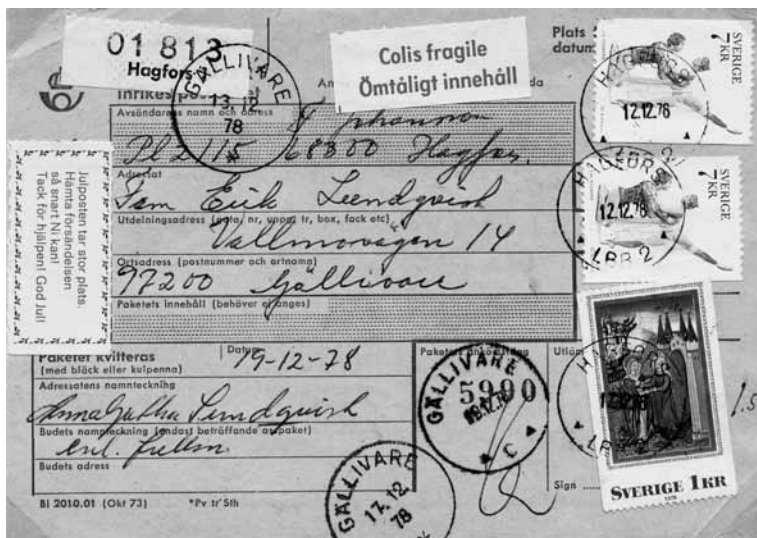 01 813
Hagfors
Colis fragile
Ömtåligt innehåll
Plats
datum
Inrikes
Avsändarens namn och adress
Johansson
Pl 2115 68300 Hagfors
Adressat
Sam Erik Lundqvist
Utdelningsadress (gata, nr, uppg, tr, box, fack etc)
Vallmovägen 14
Ortsadress (postnummer och ortnamn)
97200 Gällivare
Paketets innehåll (behöver ej anges)
Julposten tar stor plats.
Hämta försändelsen
så snart Ni kan!
Tack för hjälpen! God Jul!
Paketet kvitteras
(med bläck eller kulpenna)
Datum
19-12-78
Adressatens namnteckning
Lundqvist
Budets namnteckning (endast beträffande avipaket)
enl. fullm.
Budets adress
Bl 2010.01 (Okt 73) *Pv tr Sth
Paketets
5990
Sign
GÄLLIVARE
13.12
78
GÄLLIVARE
C
GÄLLIVARE
17.12
78
SVERIGE
7 KR
HAGFORS
12.12.78
LBB 2
SVERIGE
7 KR
HAGFORS
12.12.78
LBB 2
12.12.78
LBB 2
SVERIGE 1 KR
1978